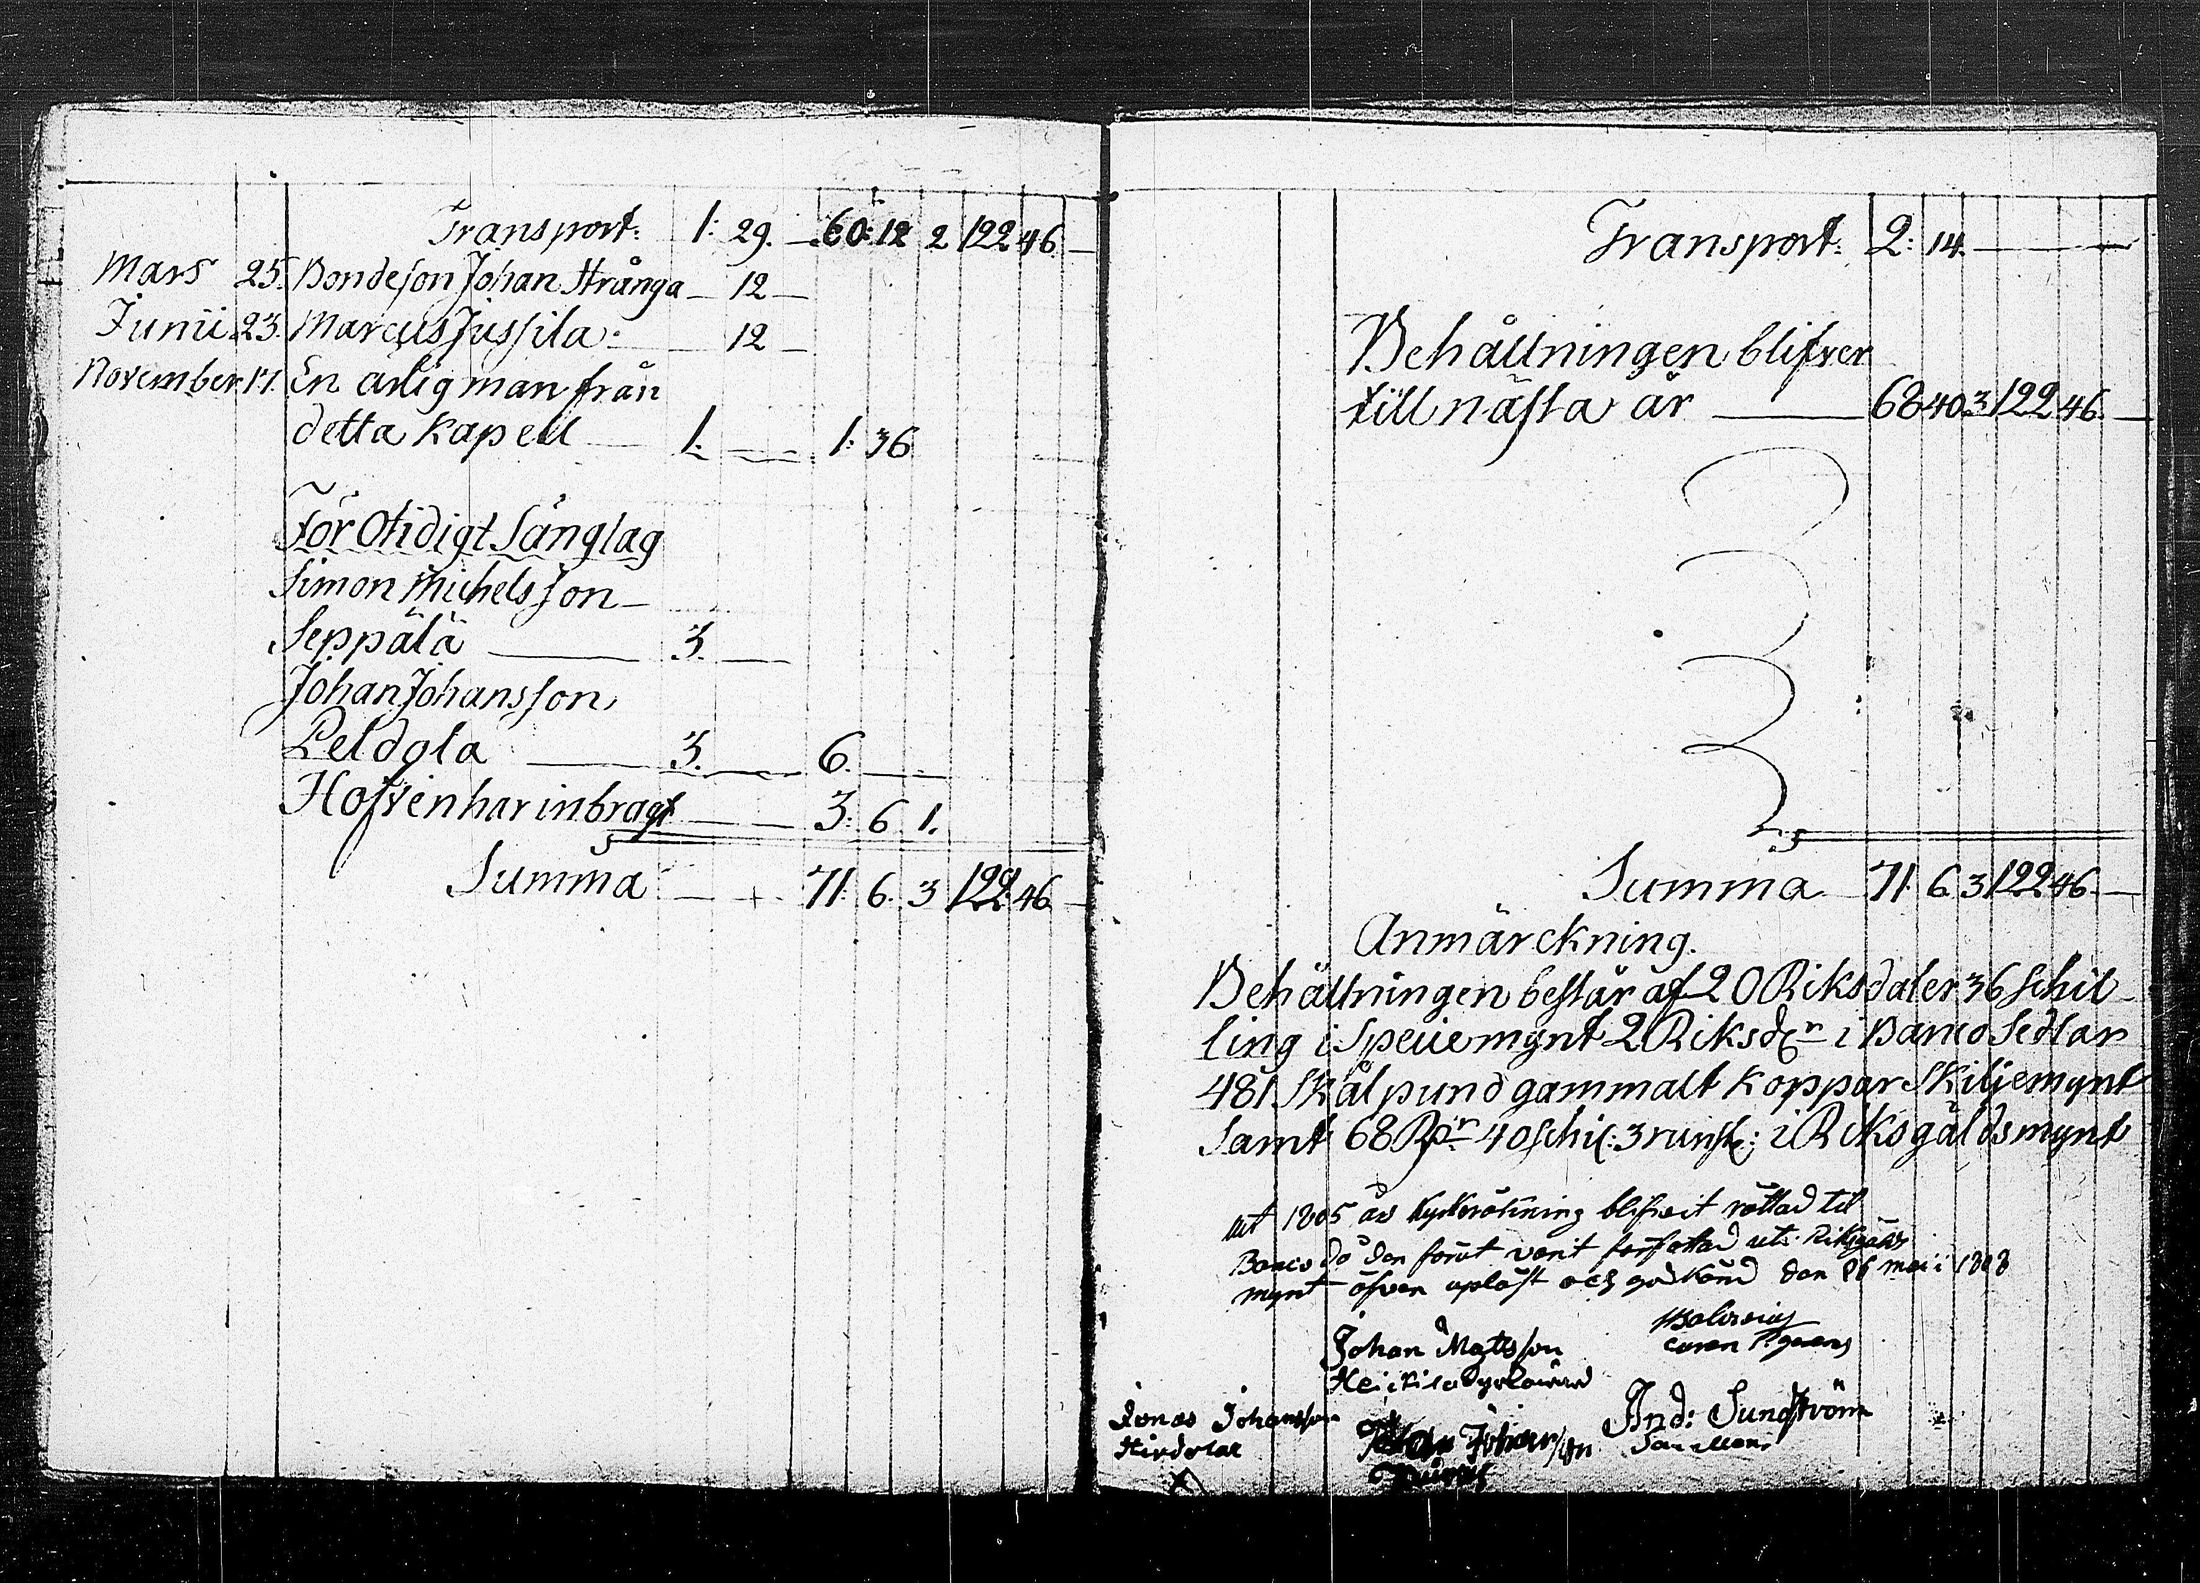 Transport: 1: 29. — 60: 12 2 122 46 —
Mars 25. Bondeson Johan Strånga — 12 —
Junii 23. Marcus Jussila: — 12 —
November 17. En ärlig man från
detta Kapell — 1. — 1: 36
För Otidigt Sänglag
Simon Michelsson —
Seppälä — 3. —
Johan Johansson
Peldola — 3. — 6. —
Hofven har inbragt — 3: 6 1.
Summa — 71: 6. 3 122: 46 —
Transport: 2: 14. —
Behållningen blifver
till nästa år — 68 40 3 122 46 —
Summa 71 6 3 122 46 —
Anmärckning.
Behållningen består af 20 Riksdaler 36 Schil-
ling i Speciemynt 2 Riksdr i Banco Sedlar
481 Skålpund gammalt Koppar Skiljemynt
Samt 68 Rdr 40 schil: 3 runst: i Riksgäldsmynt
att 1805 års Kyrkoräkning blifveit rättad til
Banco då den förut varit författad uti Riksgälds
mynt öfven upläst och godkänd den 26 maii 1808
Johan Mattsson
Heickilä Kyrkovärd
And: Sundström
Jonas Johansson
Johan Johansson